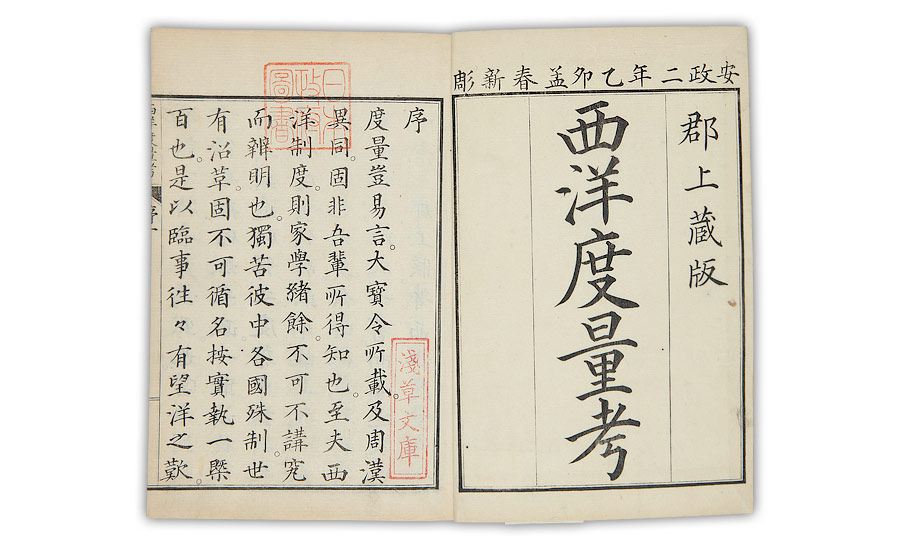 安政二年乙卯孟春新彫
郡上蔵版
西洋度量考
序
度量豈易言。大寶令所載。及周漢
異同。固非吾輩所得知也。至夫西
洋制度。則家學緒餘不可不講究
而辨明也。獨苦彼中各國殊制世
有沿革固不可循名按實執一槩
百也。是以臨事往々有望洋之歎。
日本政府圖書
淺草文庫